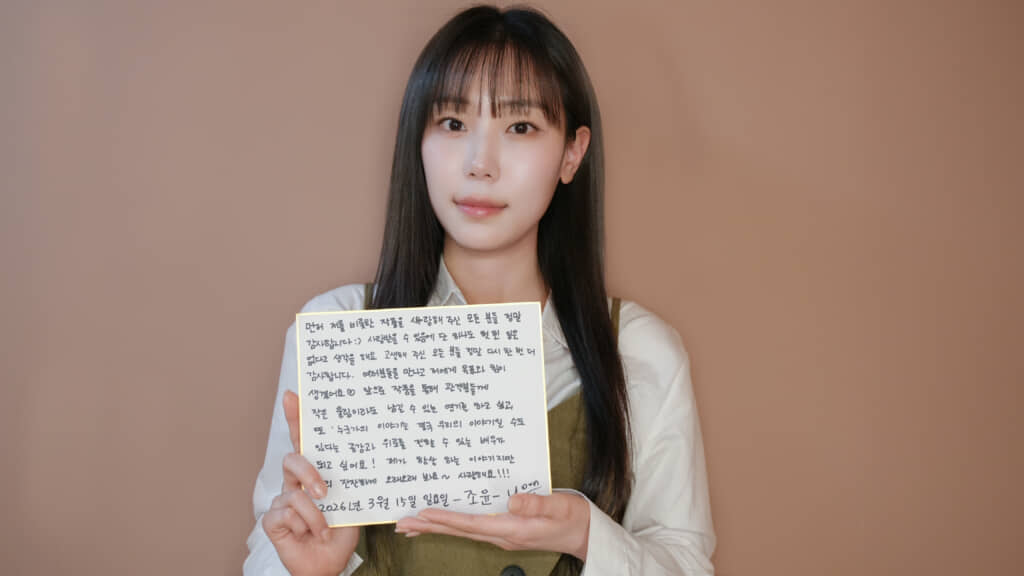 먼저 저를 비롯한 작품을 사랑해 주신 모든 분들 정말
감사합니다 :) 사랑받을 수 있음에 단 하나도 당연한 일은
없다고 생각을 해요 고생해 주신 모든 분들 정말 다시 한 번 더
감사합니다. 여러분들을 만나고 저에게 목표와 힘이
생겼어요 앞으로 작품을 통해 관객분들께
작은 울림이라도 남길 수 있는 연기를 하고 싶고,
또 '누군가의 이야기는 결국 우리의 이야기일 수도
있다는 공감과 위로를 전할 수 있는 배우가
되고 싶어요! 제가 항상 하는 이야기지만
잔잔하게 오래오래 봐요~ 사랑해요!!!
2026년 3월 15일 일요일 - 조윤 -